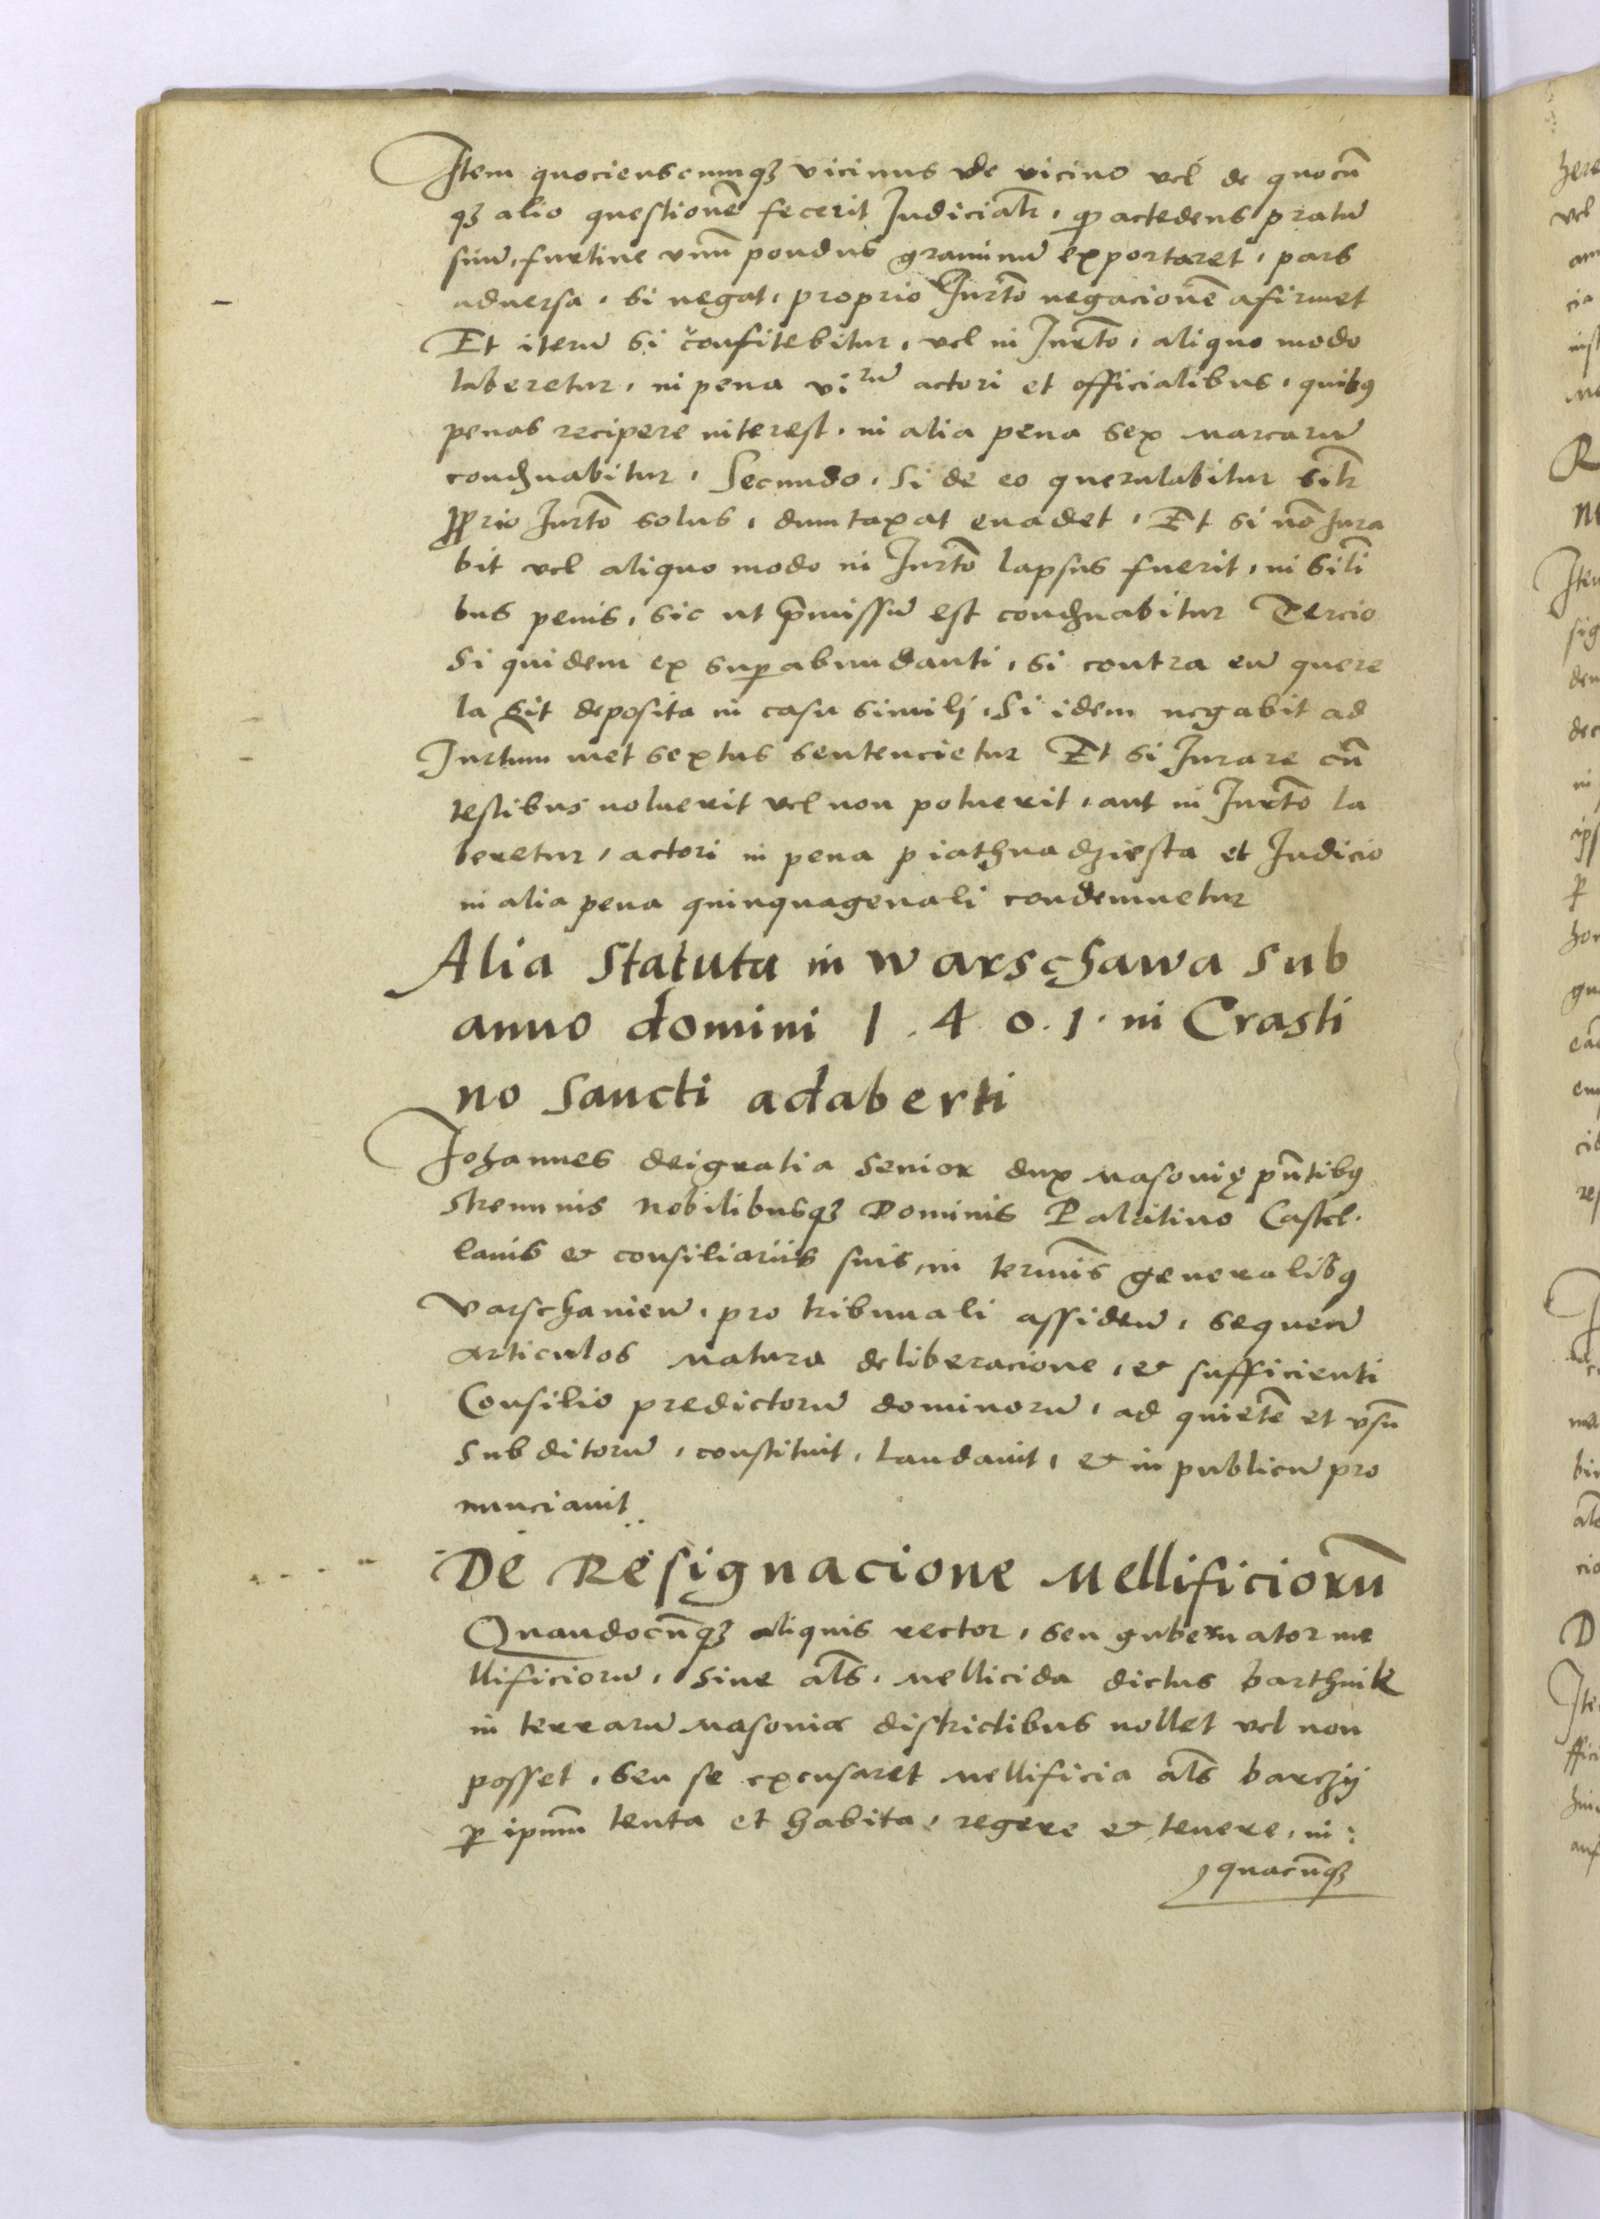 Item quocienscumqꝫ vicinus de vicino vel de quocū
qꝫ alio questionē fecerit Judicialr̃, ꝙ accedens pratū
suū, furtiue vnū pondus graminū exportaret, pars
aduersa, si negat, proprio Jurt̃o negacionē afirmet
Et iterū si confitebitur, vel in Jurt̃o, aliquo modo
laberetur, in pena vi rū actori et officialibus, quibꝯ
penas recipere interest, in alia pena sex marcarū
condnabitur, Secundo, si de eo querulabitur silr̃
ꝓprio Jurt̃o solus, dumtaxat euadet, Et si nō Jura
bit vel aliquo modo in Jurt̃o lapsus fuerit, in sili
bus penis, sic ut p̄missū est condnabitur Tercio
Si quidem ex suꝑabundanti, si contra eū quere
la sit deposita in casu simili, Si idem negabit ad
Jurtum met sextus sentencietur Et si Jurare cū
testibus noluerit vel non poluerit, aut in Jurt̃o la
beretur, actori in pena piathnadziesta et Judicio
in alia pena quinquagenali condemnetur
Alia statuta in warschawa sub
anno domini 1.4.0.1. in Crasti
no sancti adaberti
Johannes deigratia senior dux masouię pn̄tibꝯ
strenuuis nobilibusqꝫ Dominis Palatino Castel.
lanis & consiliariis suis, in termīs generalibꝯ
Varschauien̄, pro tribunali assiden̄, sequen̄
articulos matura deliberacione, & sufficienti
Consilio predictorū dominorū, ad quietē et vsū
subditorū, constituit, laudauit, & in publicū pro
nunciauit
De Resignacione Mellificiorū
Quandocūqꝫ aliquis rector, seu gubernator me
llificiorū, siue als̄, mellicida dictus barthnik
in terrarū masouiae districtibus nollet vel non
posset, seu se excusaret mellificia als̄ barczij
ꝑ ipm̄ tenta et habita, regere & tenere, in:
quacūqꝫ